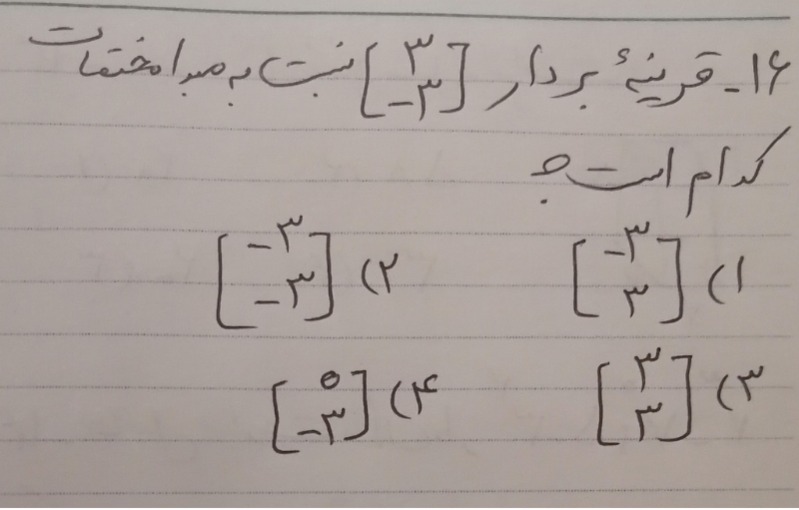 ۱۶- قرینهٔ بردار [۳ -۳] نسبت به مبدا مختصات
کدام است؟
۱) [-۳ ۳] ۲) [-۳ -۳]
۳) [۳ ۳] ۴) [۰ -۳]